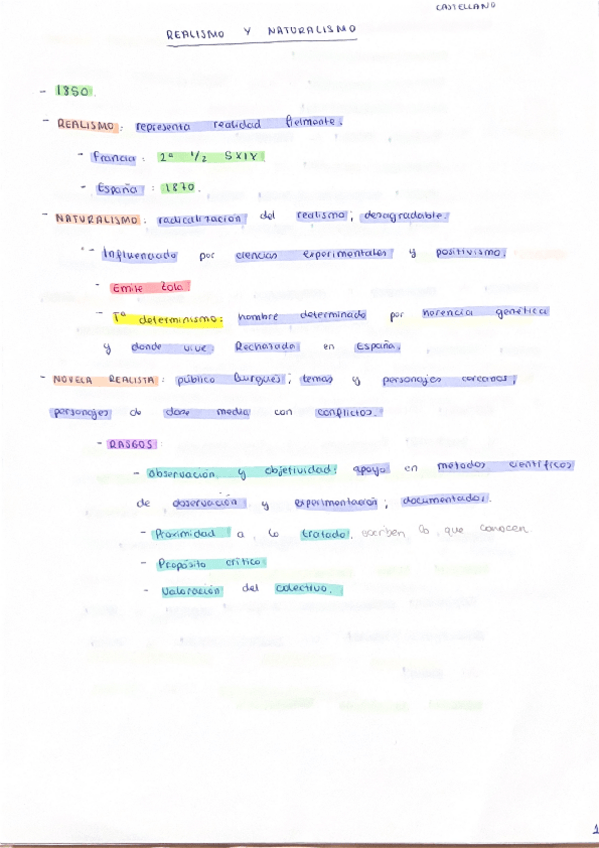 CASTELLANO
REALISMO Y NATURALISMO
- 1850.
- REALISMO: representa realidad fielmente.
- Francia: 2ª 1/2 S XIX
- España: 1870.
- NATURALISMO: radicalización del realismo; desagradable.
- Influenciado por ciencias experimentales y positivismo.
- Emile Zola
- Tª determinismo: hombre determinado por herencia genética
y donde vive Rechazado en España.
- NOVELA REALISTA: público burgués; temas y personajes cercanos;
personajes de clase media con conflictos.
- RASGOS:
- Observación y objetividad: apoyo en métodos científicos
de observación y experimentación; documentados.
- Proximidad a lo tratado. escriben lo que conocen
- Propósito crítico
- Valoración del colectivo.
1